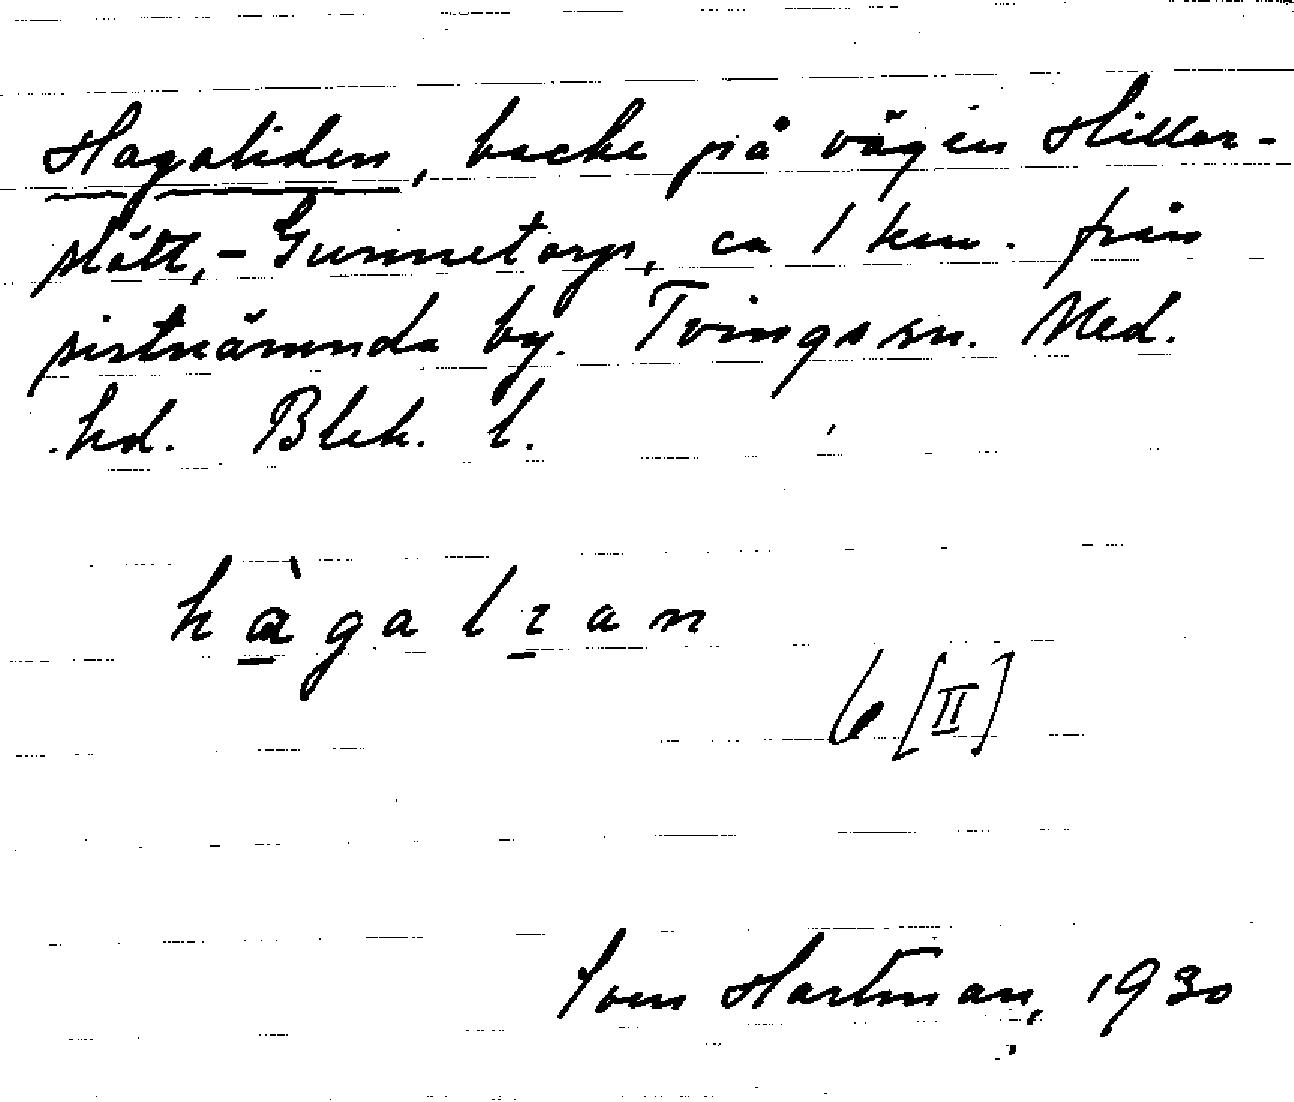 Hagaliden, backe på vägen Hiller-
slätt, - Gunnetorp, ca 1 km. från
sistnämnda by. Tvings sn. Med.
hd. Blek. l.
hàgalıan
6 [II]
Sven Hartman, 1930